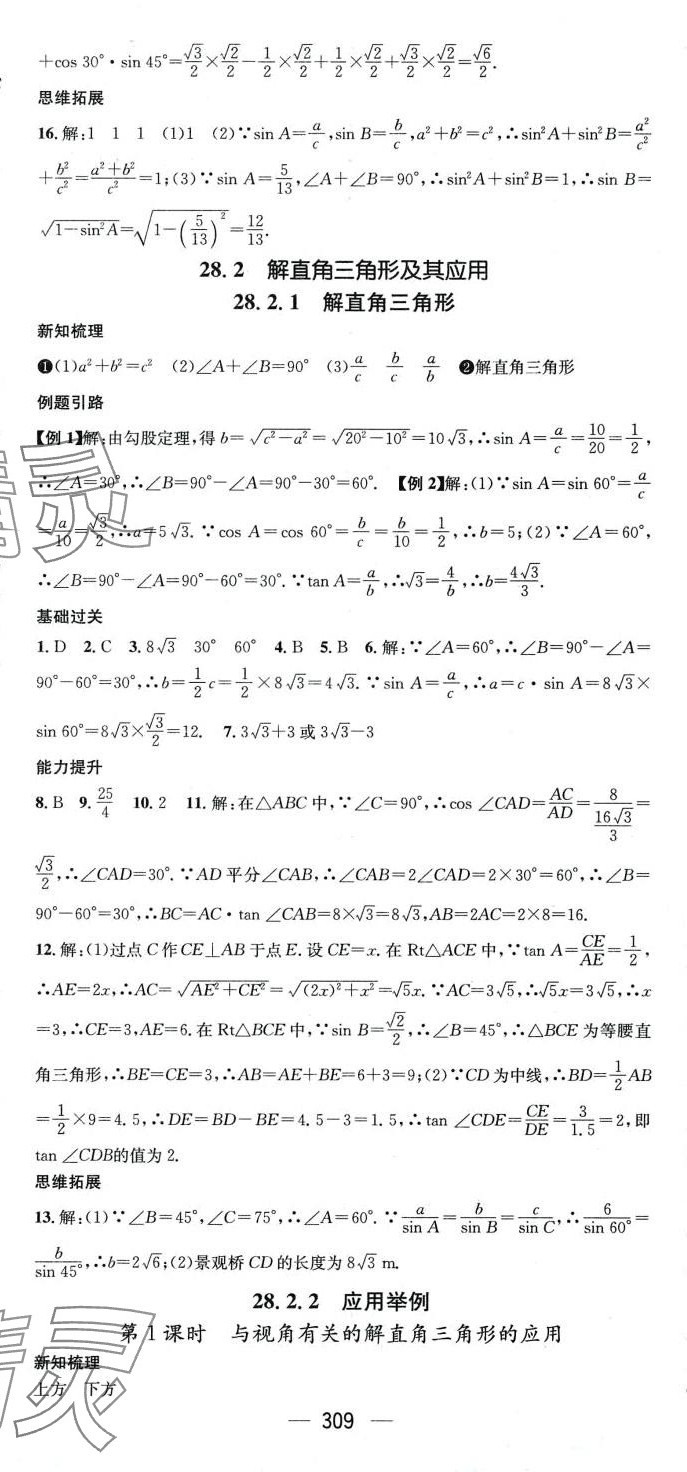 +cos 30°·sin 45°=√3/2×√2/2−1/2×√2/2+1/2×√2/2+√3/2×√2/2=√6/2.
思维拓展
16.解:1 1 1 (1)1 (2)∵sin A=a/c,sin B=b/c,a²+b²=c²,∴sin²A+sin²B=a²/c²
+b²/c²=(a²+b²)/c²=1;(3)∵sin A=5/13,∠A+∠B=90°,∴sin²A+sin²B=1,∴sin B=
√(1−sin²A)=√(1−(5/13)²)=12/13.
28.2 解直角三角形及其应用
28.2.1 解直角三角形
新知梳理
❶(1)a²+b²=c² (2)∠A+∠B=90° (3)a/c b/c a/b ❷解直角三角形
例题引路
【例1】解:由勾股定理,得b=√(c²−a²)=√(20²−10²)=10√3,∴sin A=a/c=10/20=1/2,
∴∠A=30°,∴∠B=90°−∠A=90°−30°=60°. 【例2】解:(1)∵sin A=sin 60°=a/c
=a/10=√3/2,∴a=5√3.∵cos A=cos 60°=b/c=b/10=1/2,∴b=5;(2)∵∠A=60°,
∴∠B=90°−∠A=90°−60°=30°.∵tan A=a/b,∴√3=4/b,∴b=4√3/3.
基础过关
1.D 2.C 3.8√3 30° 60° 4.B 5.B 6.解:∵∠A=60°,∴∠B=90°−∠A=
90°−60°=30°,∴b=1/2c=1/2×8√3=4√3.∵sin A=a/c,∴a=c·sin A=8√3×
sin 60°=8√3×√3/2=12. 7.3√3+3或3√3−3
能力提升
8.B 9.25/4 10.2 11.解:在△ABC中,∵∠C=90°,∴cos ∠CAD=AC/AD=8/(16√3/3)=
√3/2,∴∠CAD=30°.∵AD平分∠CAB,∴∠CAB=2∠CAD=2×30°=60°,∴∠B=
90°−60°=30°,∴BC=AC·tan ∠CAB=8×√3=8√3,AB=2AC=2×8=16.
12.解:(1)过点C作CE⊥AB于点E.设CE=x.在Rt△ACE中,∵tan A=CE/AE=1/2,
∴AE=2x,∴AC=√(AE²+CE²)=√((2x)²+x²)=√5x.∵AC=3√5,∴√5x=3√5,∴x
=3,∴CE=3,AE=6.在Rt△BCE中,∵sin B=√2/2,∴∠B=45°,∴△BCE为等腰直
角三角形,∴BE=CE=3,∴AB=AE+BE=6+3=9;(2)∵CD为中线,∴BD=1/2AB
=1/2×9=4.5,∴DE=BD−BE=4.5−3=1.5,∴tan ∠CDE=CE/DE=3/1.5=2,即
tan ∠CDB的值为2.
思维拓展
13.解:(1)∵∠B=45°,∠C=75°,∴∠A=60°.∵a/sin A=b/sin B=c/sin C,∴6/sin 60°=
b/sin 45°,∴b=2√6;(2)景观桥CD的长度为8√3 m.
28.2.2 应用举例
第1课时 与视角有关的解直角三角形的应用
新知梳理
上方 下方
— 309 —